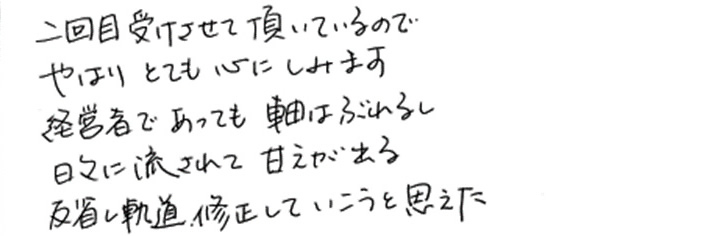 二回目受けさせて頂いているので
やはり とても 心に しみます
経営者で あっても 軸は ぶれるし
日々に 流されて 甘えが 出る
反省し 軌道修正して いこうと 思えた